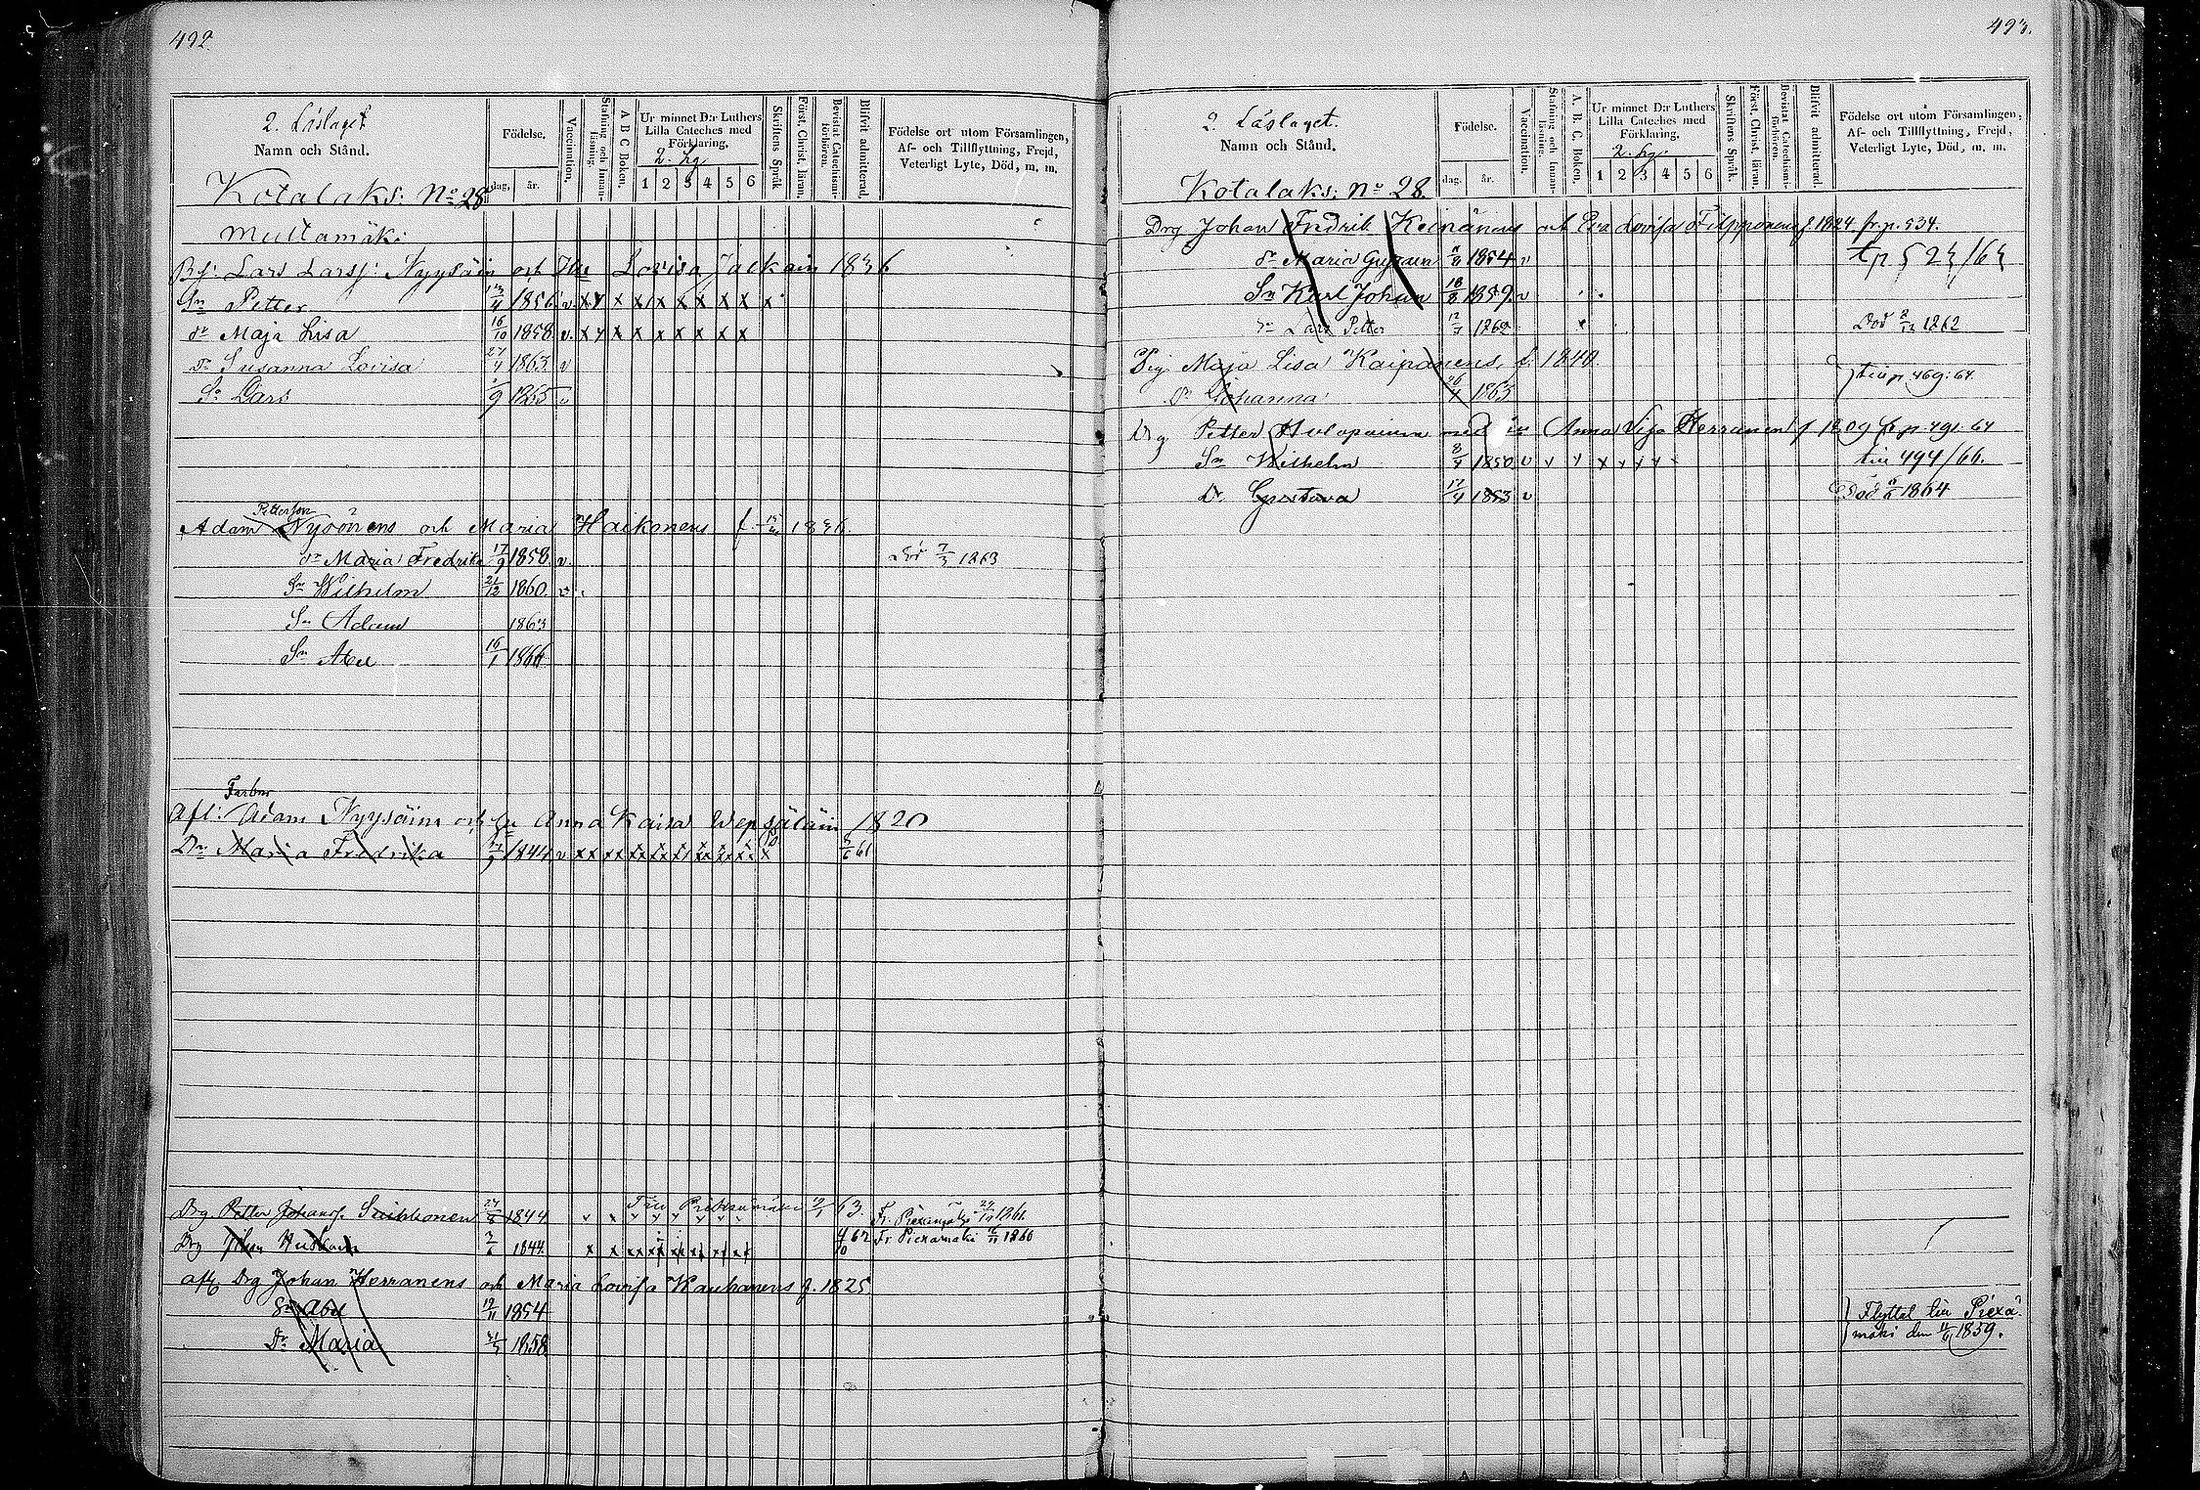 492.
2. Läslaget
Namn och Stånd.
Födelse.
dag, år.
Vaccination.
Stafning och Innanläsning.
A B C Boken.
Ur minnet D:r Luthers Lilla Cateches med Förklaring.
2. Lg.
1 2 3 4 5 6
Skriftens Språk
Först. Christ. läran.
Bevistat Catechismiförhören.
Blifvit admitterad.
Födelse ort utom Församlingen,
Af- och Tillflyttning, Frejd,
Veterligt Lyte, Död, m. m.
Kotalaks: No 28
Multamäki
Lars Larss: Nyysäin och Lovisa Jalkain 1836
Sn Petter 13/4 1856 v x x x x x x x x x x
dr Maja Lisa 16/10 1858 v x x x x x x x x x
Dr Susanna Lovisa 27/4 1863 v
Sn Lars 1865 v
Petterson
Adam Nysönens och Maria Haikonens f. 1836.
dr Maria Fredrika 17/9 1858 v. Död 7/3 1863
Sn Wilhelm 21/12 1860 v
Sn Adam 1863
Sn Abel 16/1 1866
Farbror
Afl: Adam Nyysäin och Anna Kaisa Wepsäläin 1820
Dr Maria Fredrika 1844 v x x x x x x x x x x 61
Drg Petter Johanss. Suihkonen 1844 63. Fr. 1861
Drg Johan 1844 x x x x x x x x 62 Fr Piexämäki 1860
afl. Drg Johan Herranens och Maria Lovisa Kauhanens f. 1825
Sn Abel 19/11 1854
Dr Maria 31/5 1858
493.
2. Läslaget.
Namn och Stånd.
Födelse.
dag. år.
Vaccination.
Stafning och Innanläsning.
A. B. C. Boken.
Ur minnet D:r Luthers Lilla Cateches med Förklaring.
2. Lg.
1 2 3 4 5 6
Skriftens Språk.
Först. Christ. läran.
Bevistat Catechismiförhören.
Blifvit admitterad.
Födelse ort utom Församlingen,
Af- och Tillflyttning, Frejd,
Veterligt Lyte, Död, m. m.
Kotalaks: No 28.
Drg Johan Fredrik Keinänens och Eva Lovisa Filpponens f. 1824. fr. p. 534.
dr Maria 1854 v tp 523/63
Sn Karl Johan 18/8 1859 v
Sn Lars Petter 1862 Död 1862
Pig. Maja Lisa Kaipanens, f. 1840.
Dr Johanna 26/4 1863 till p 469: 64.
Drg Petter Holopainen med Anna Lisa Herranen f 1809 fr p. 491. 64
Sn Wilhelm 8/4 1850 v till 494/66.
Dr Gustava 17/4 1853 v Död 1864
Flyttat till Piexämäki den 1859.